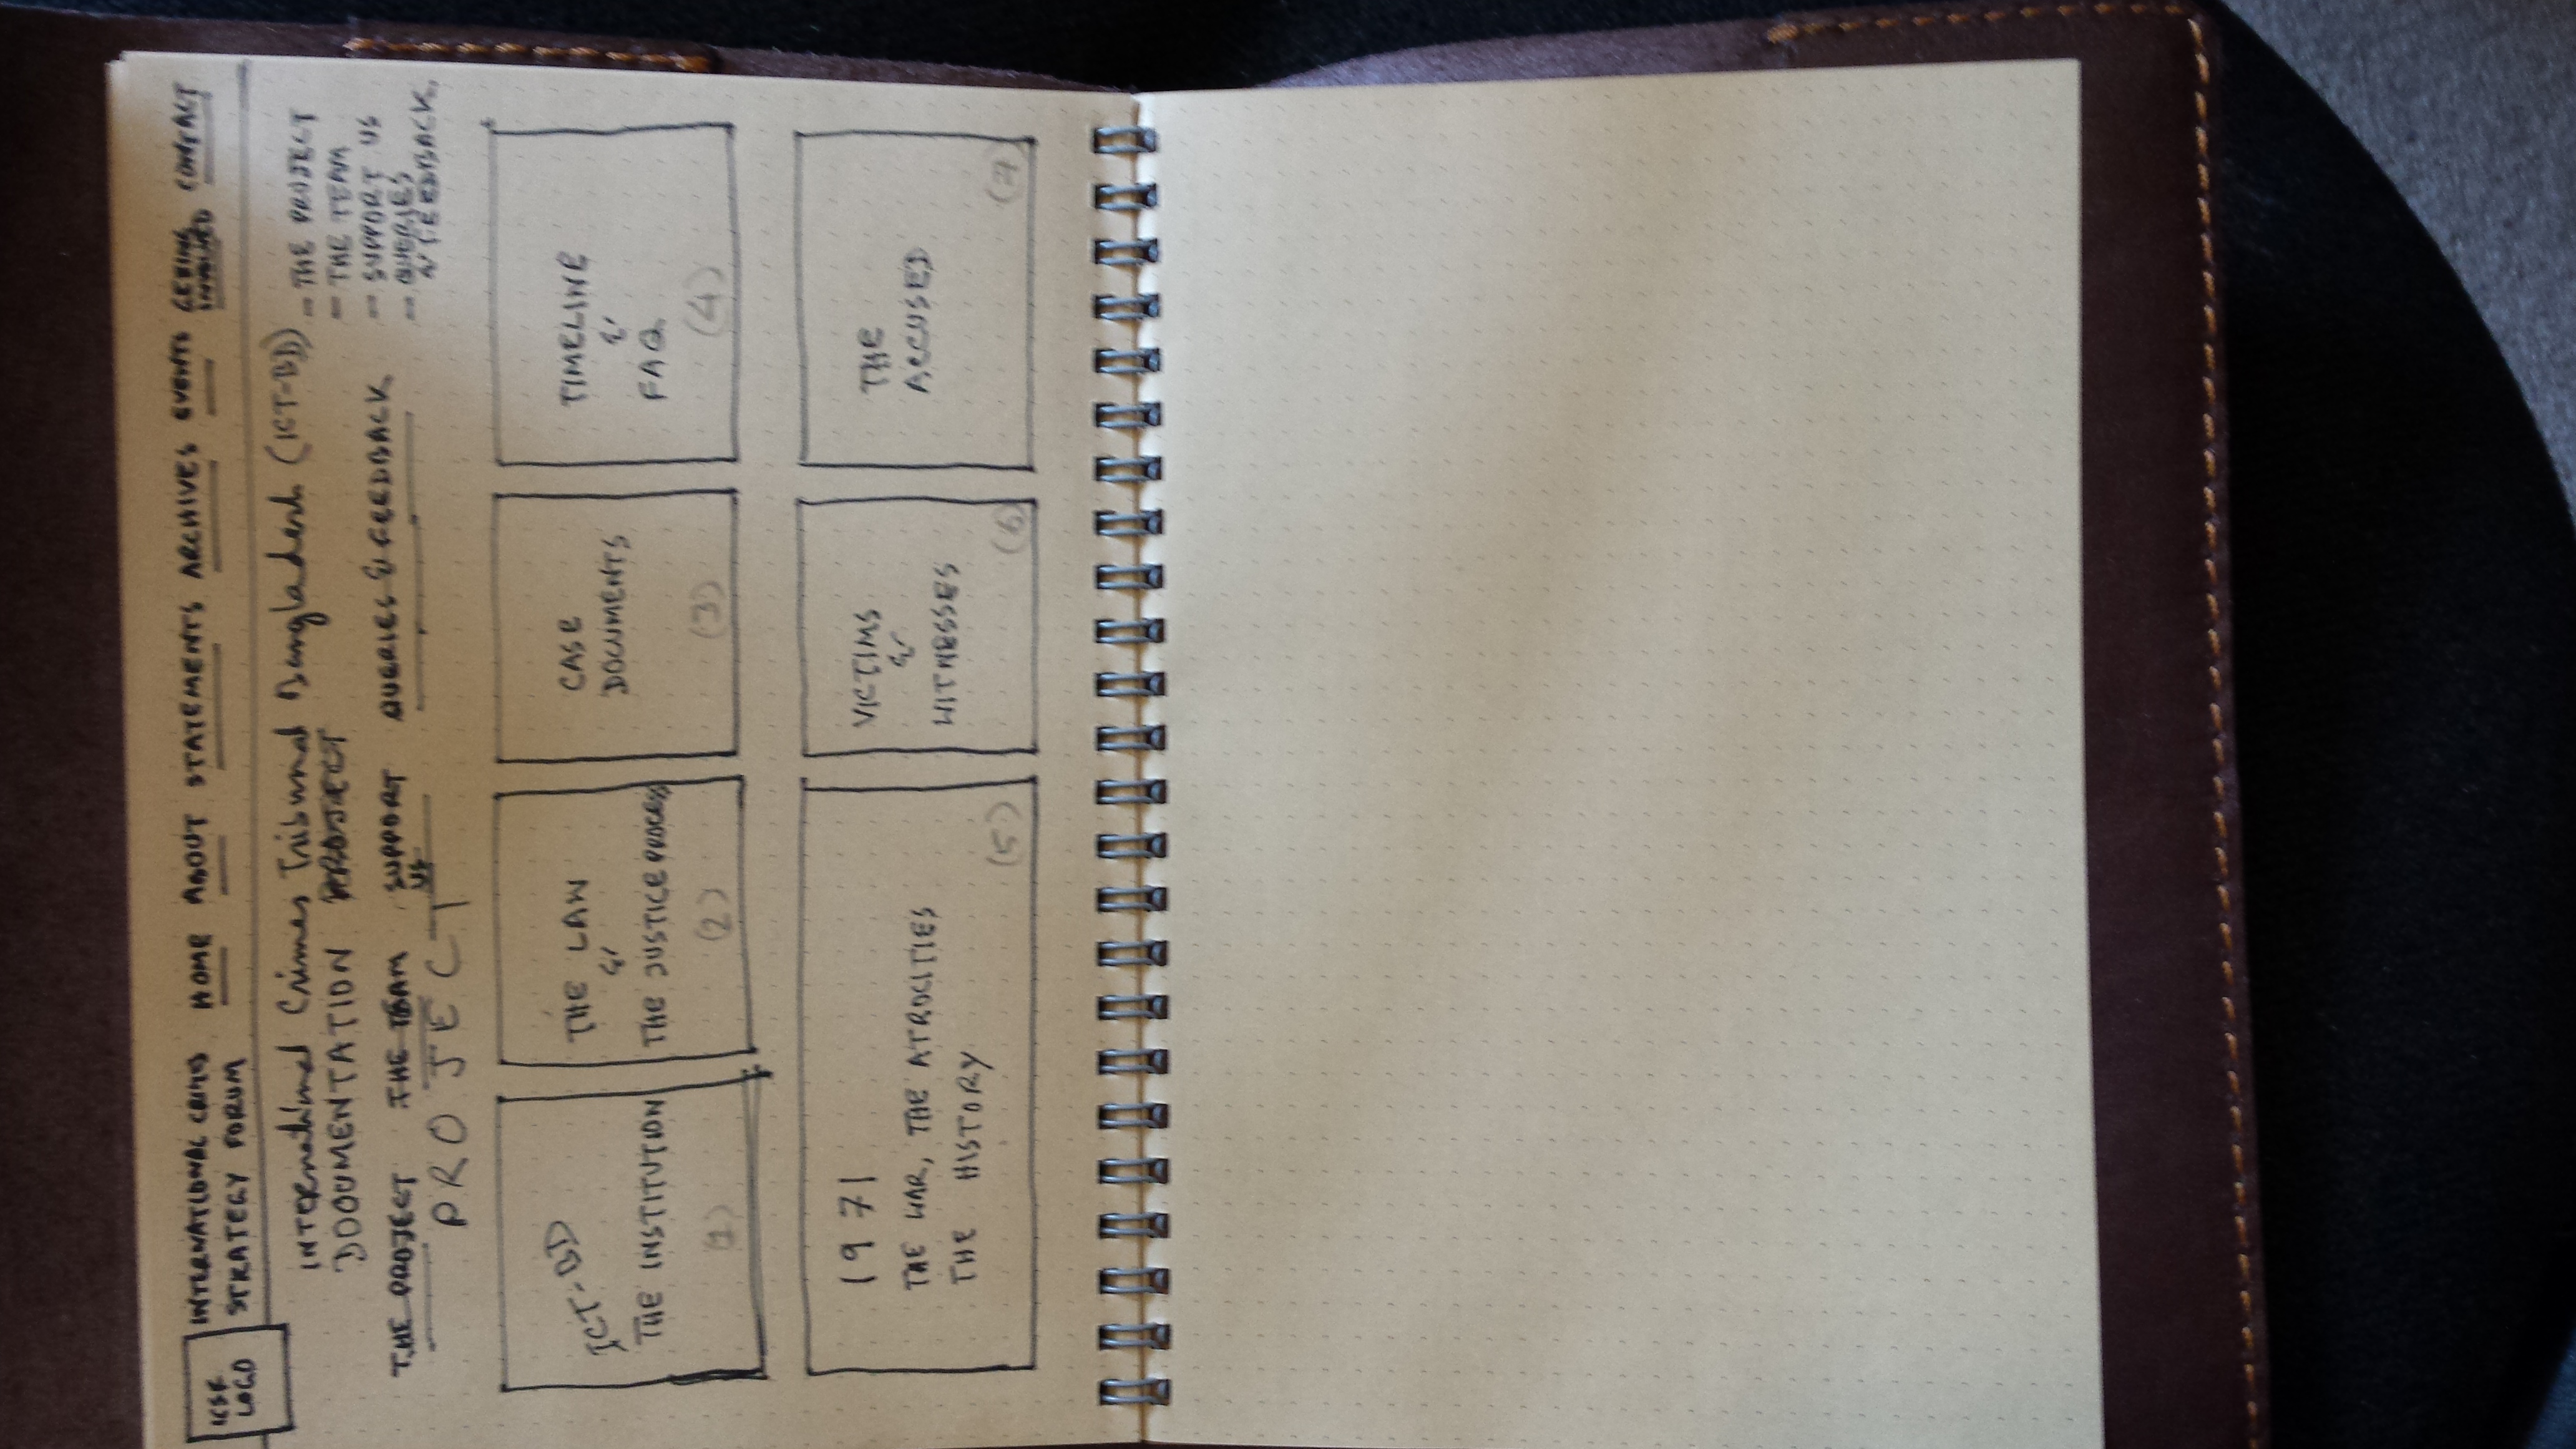 ICSF
LOGO
INTERNATIONAL CRIMES
STRATEGY FORUM
HOME ABOUT STATEMENTS ARCHIVES EVENTS GETTING INVOLVED CONTACT
INTERnational Crimes Tribunal Bangladesh (ICT-BD)
DOCUMENTATION PROJECT
- THE PROJECT
- THE TEAM
- SUPPORT US
- QUERIES
& FEEDBACK
THE PROJECT THE TEAM SUPPORT US QUERIES & FEEDBACK
PROJECT
ICT-BD
THE INSTITUTION
(1)
THE LAW
&
THE JUSTICE PROCESS
(2)
CASE
DOCUMENTS
(3)
TIMELINE
&
FAQ
(4)
1971
THE WAR, THE ATROCITIES
THE HISTORY
(5)
VICTIMS
&
WITNESSES
(6)
THE
ACCUSED
(7)